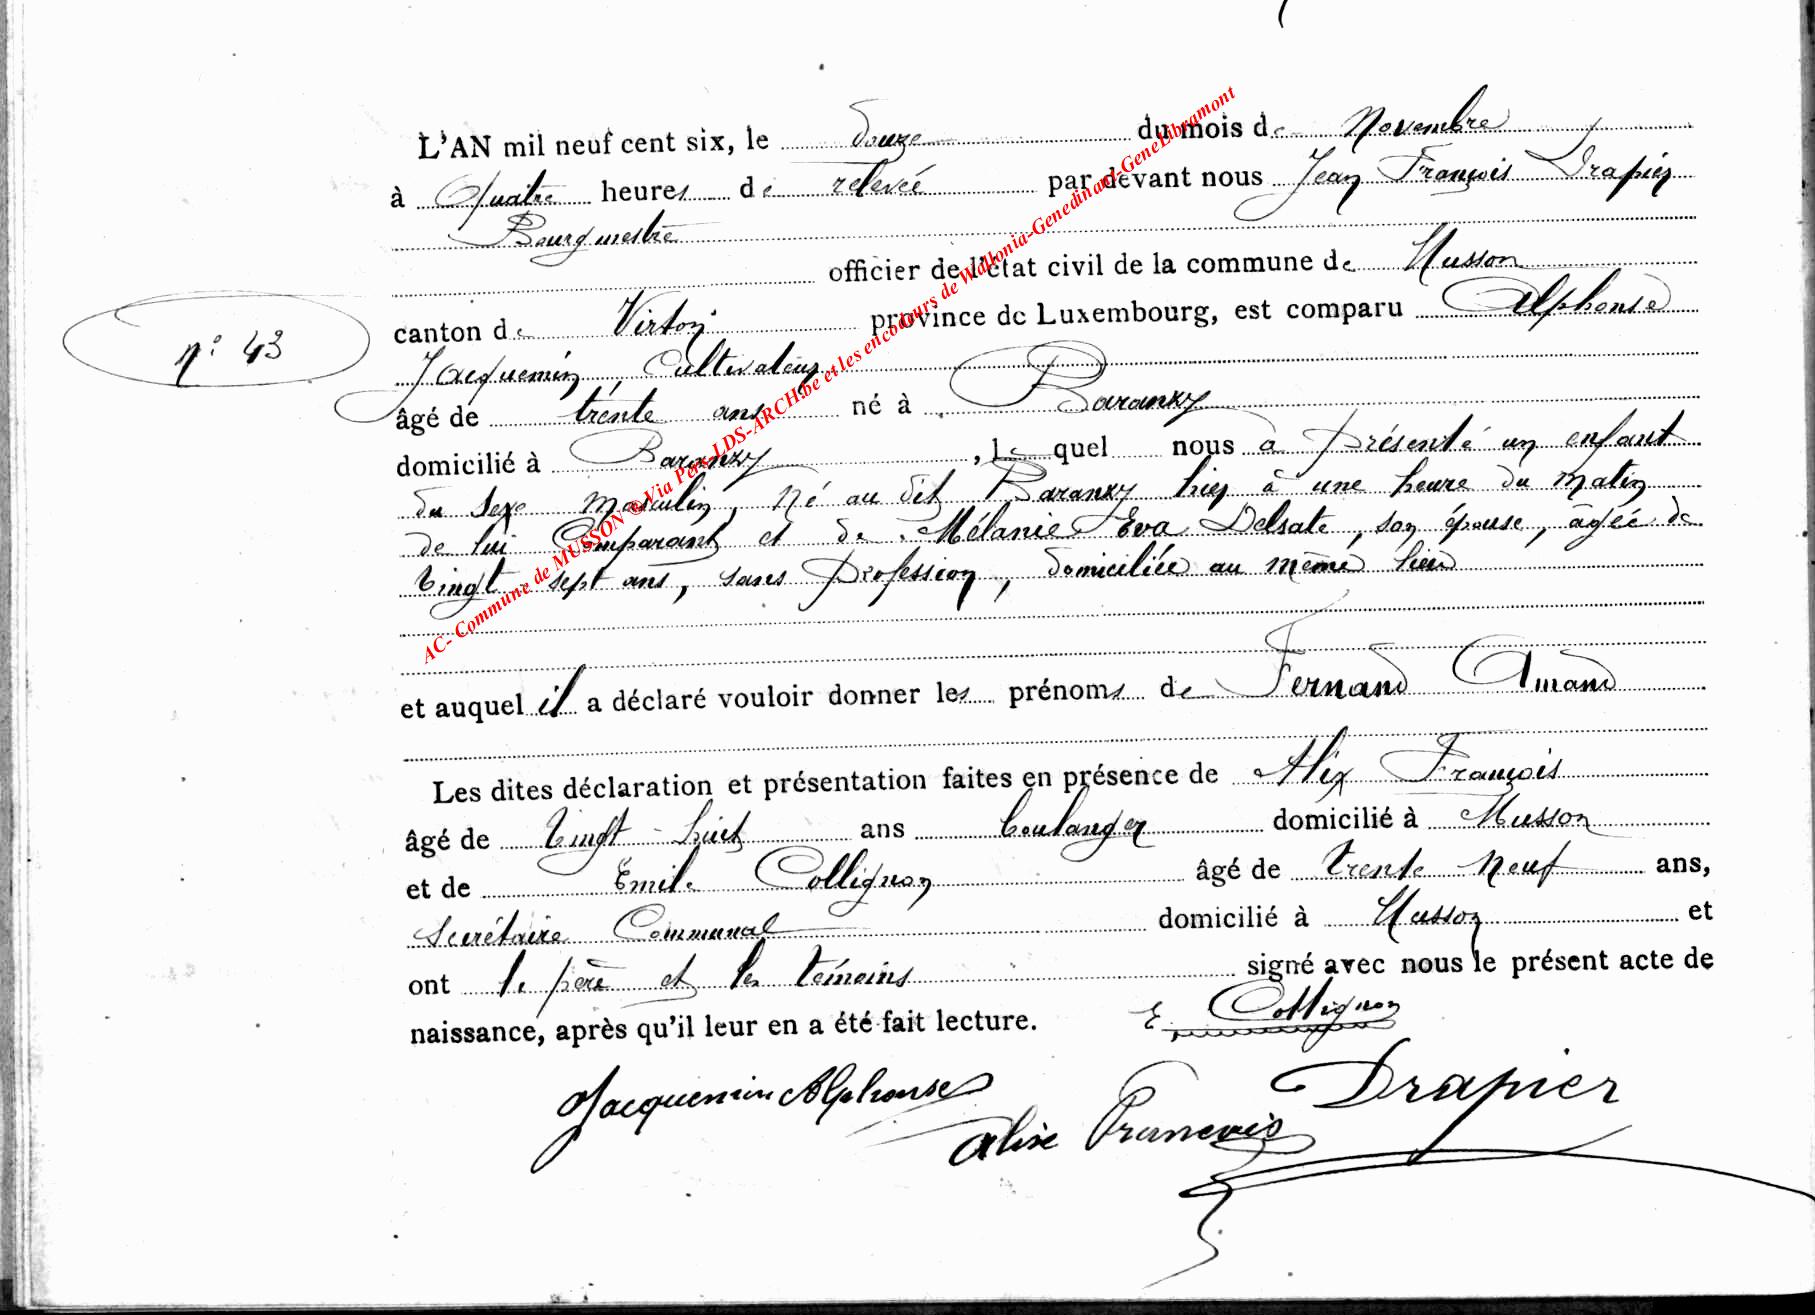 L'AN mil neuf cent six, le douze du mois de Novembre
à Quatre heures de relevée par devant nous Jean François Drapier
Bourgmestre
officier de l'état civil de la commune de Musson
canton de Virton province de Luxembourg, est comparu Alphonse
n° 43
Jacquemin, Cultivateur
âgé de trente ans né à Baranzy
domicilié à Baranzy, lequel nous a présenté un enfant
du sexe masculin, né au dit Baranzy hier à une heure du matin
de lui Comparant et de Mélanie Eva Delsate, son épouse, agée de
Vingt sept ans, sans profession, domiciliée au même lieu
et auquel il a déclaré vouloir donner les prénoms de Fernand Amand
Les dites déclaration et présentation faites en présence de Alix François
âgé de Vingt-huit ans boulanger domicilié à Musson
et de Emile Collignon âgé de trente neuf ans,
Secrétaire Communal domicilié à Musson et
ont le père et les témoins signé avec nous le présent acte de
naissance, après qu'il leur en a été fait lecture.
E. Collignon
Jacquemin Alphonse
Drapier
Alix Francois
AC- Commune de MUSSON © Via Pers-LDS-ARCH.be et les encodeurs de Wallonia-Genedinant-GeneLibramont